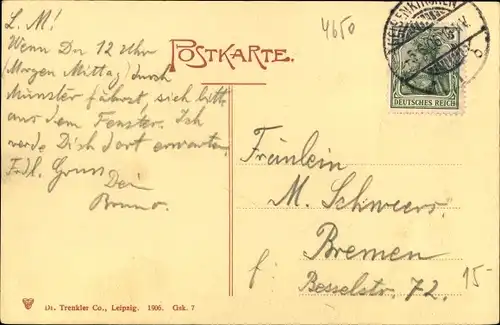 L. M!
Wenn Du 12 Uhr
(Morgen Mittag) durch
Münster fährst, sieh bitte
aus dem Fenster. Ich
werde Dich dort erwarten.
Frdl. Gruss
Dein
Bruno.
4650
POSTKARTE.
GELSENKIRCHEN
DEUTSCHES REICH
Fräulein
M. Schweers.
Bremen
Besselstr. 72.
15-
Dr. Trenkler Co., Leipzig. 1906. Gsk. 7